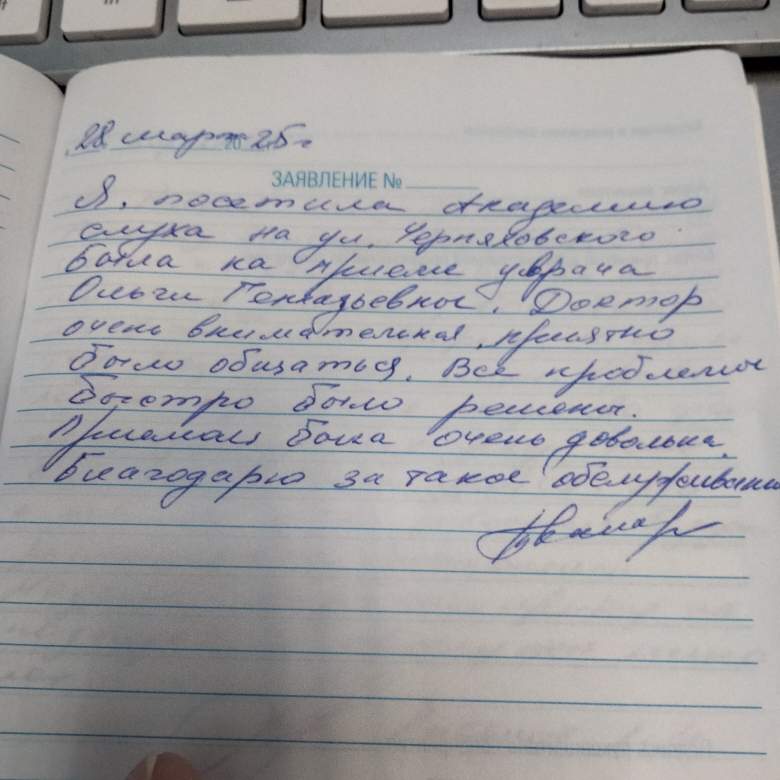 28 март 20 25 г
ЗАЯВЛЕНИЕ №
Я, посетила Академию
слуха на ул. Черняховского
была на приеме у врача
Ольги Геннадьевны. Доктор
очень внимательная, приятно
было общаться. Все проблемы
быстро было решены.
Приемом была очень довольна.
Благодарю за такое обслуживани